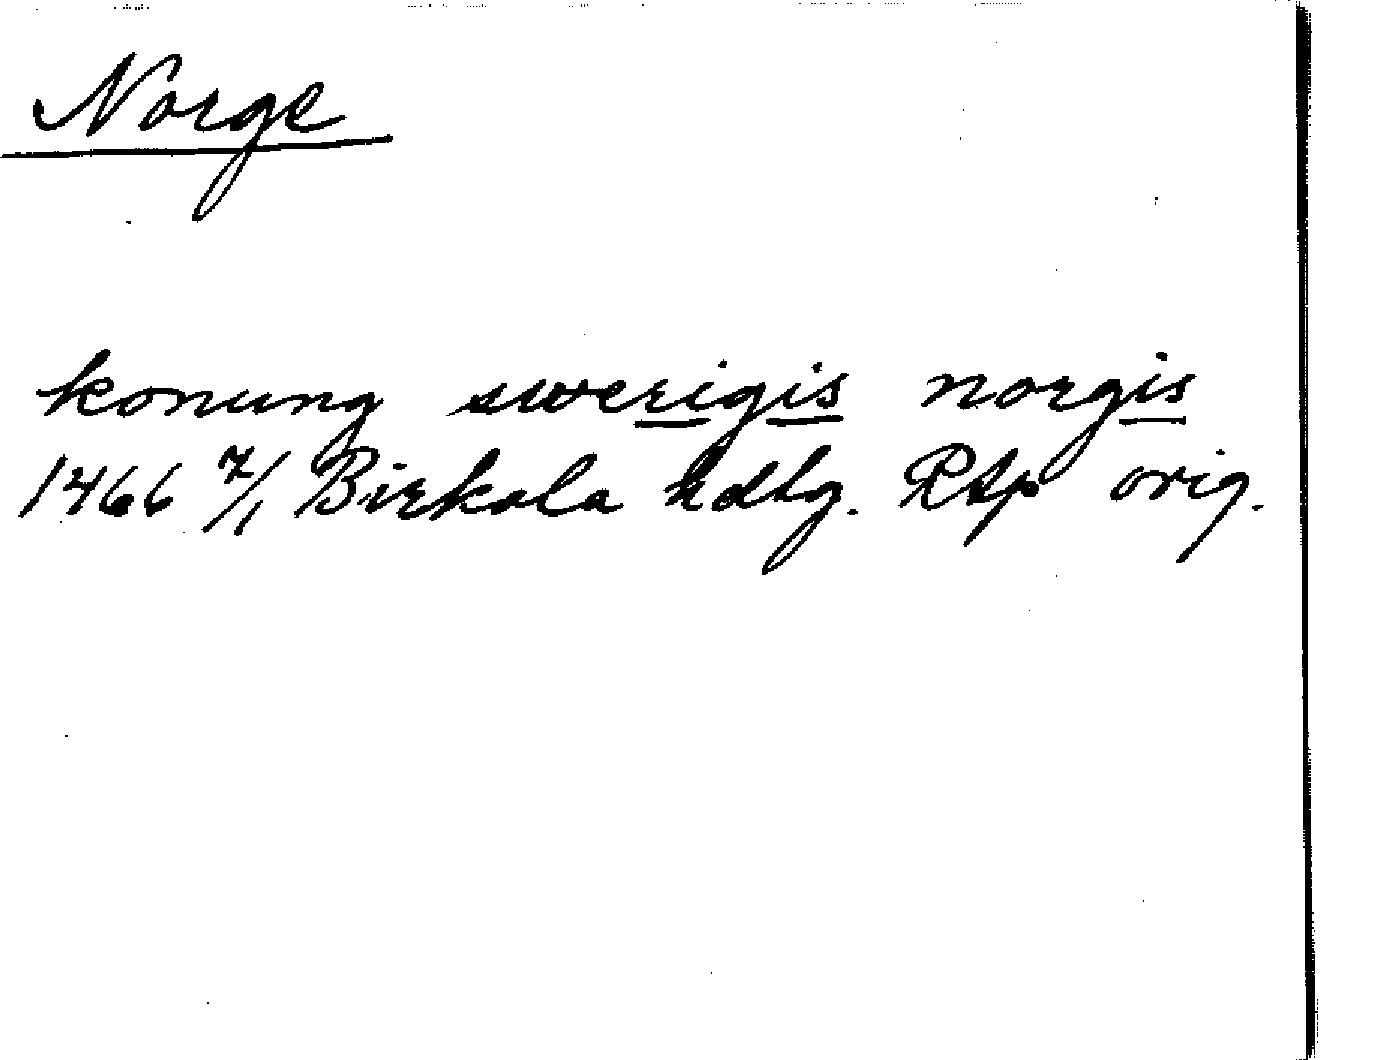 Norge
konung swerigis norgis
1466 7/1 Birkala hdlg. Rtp orig.